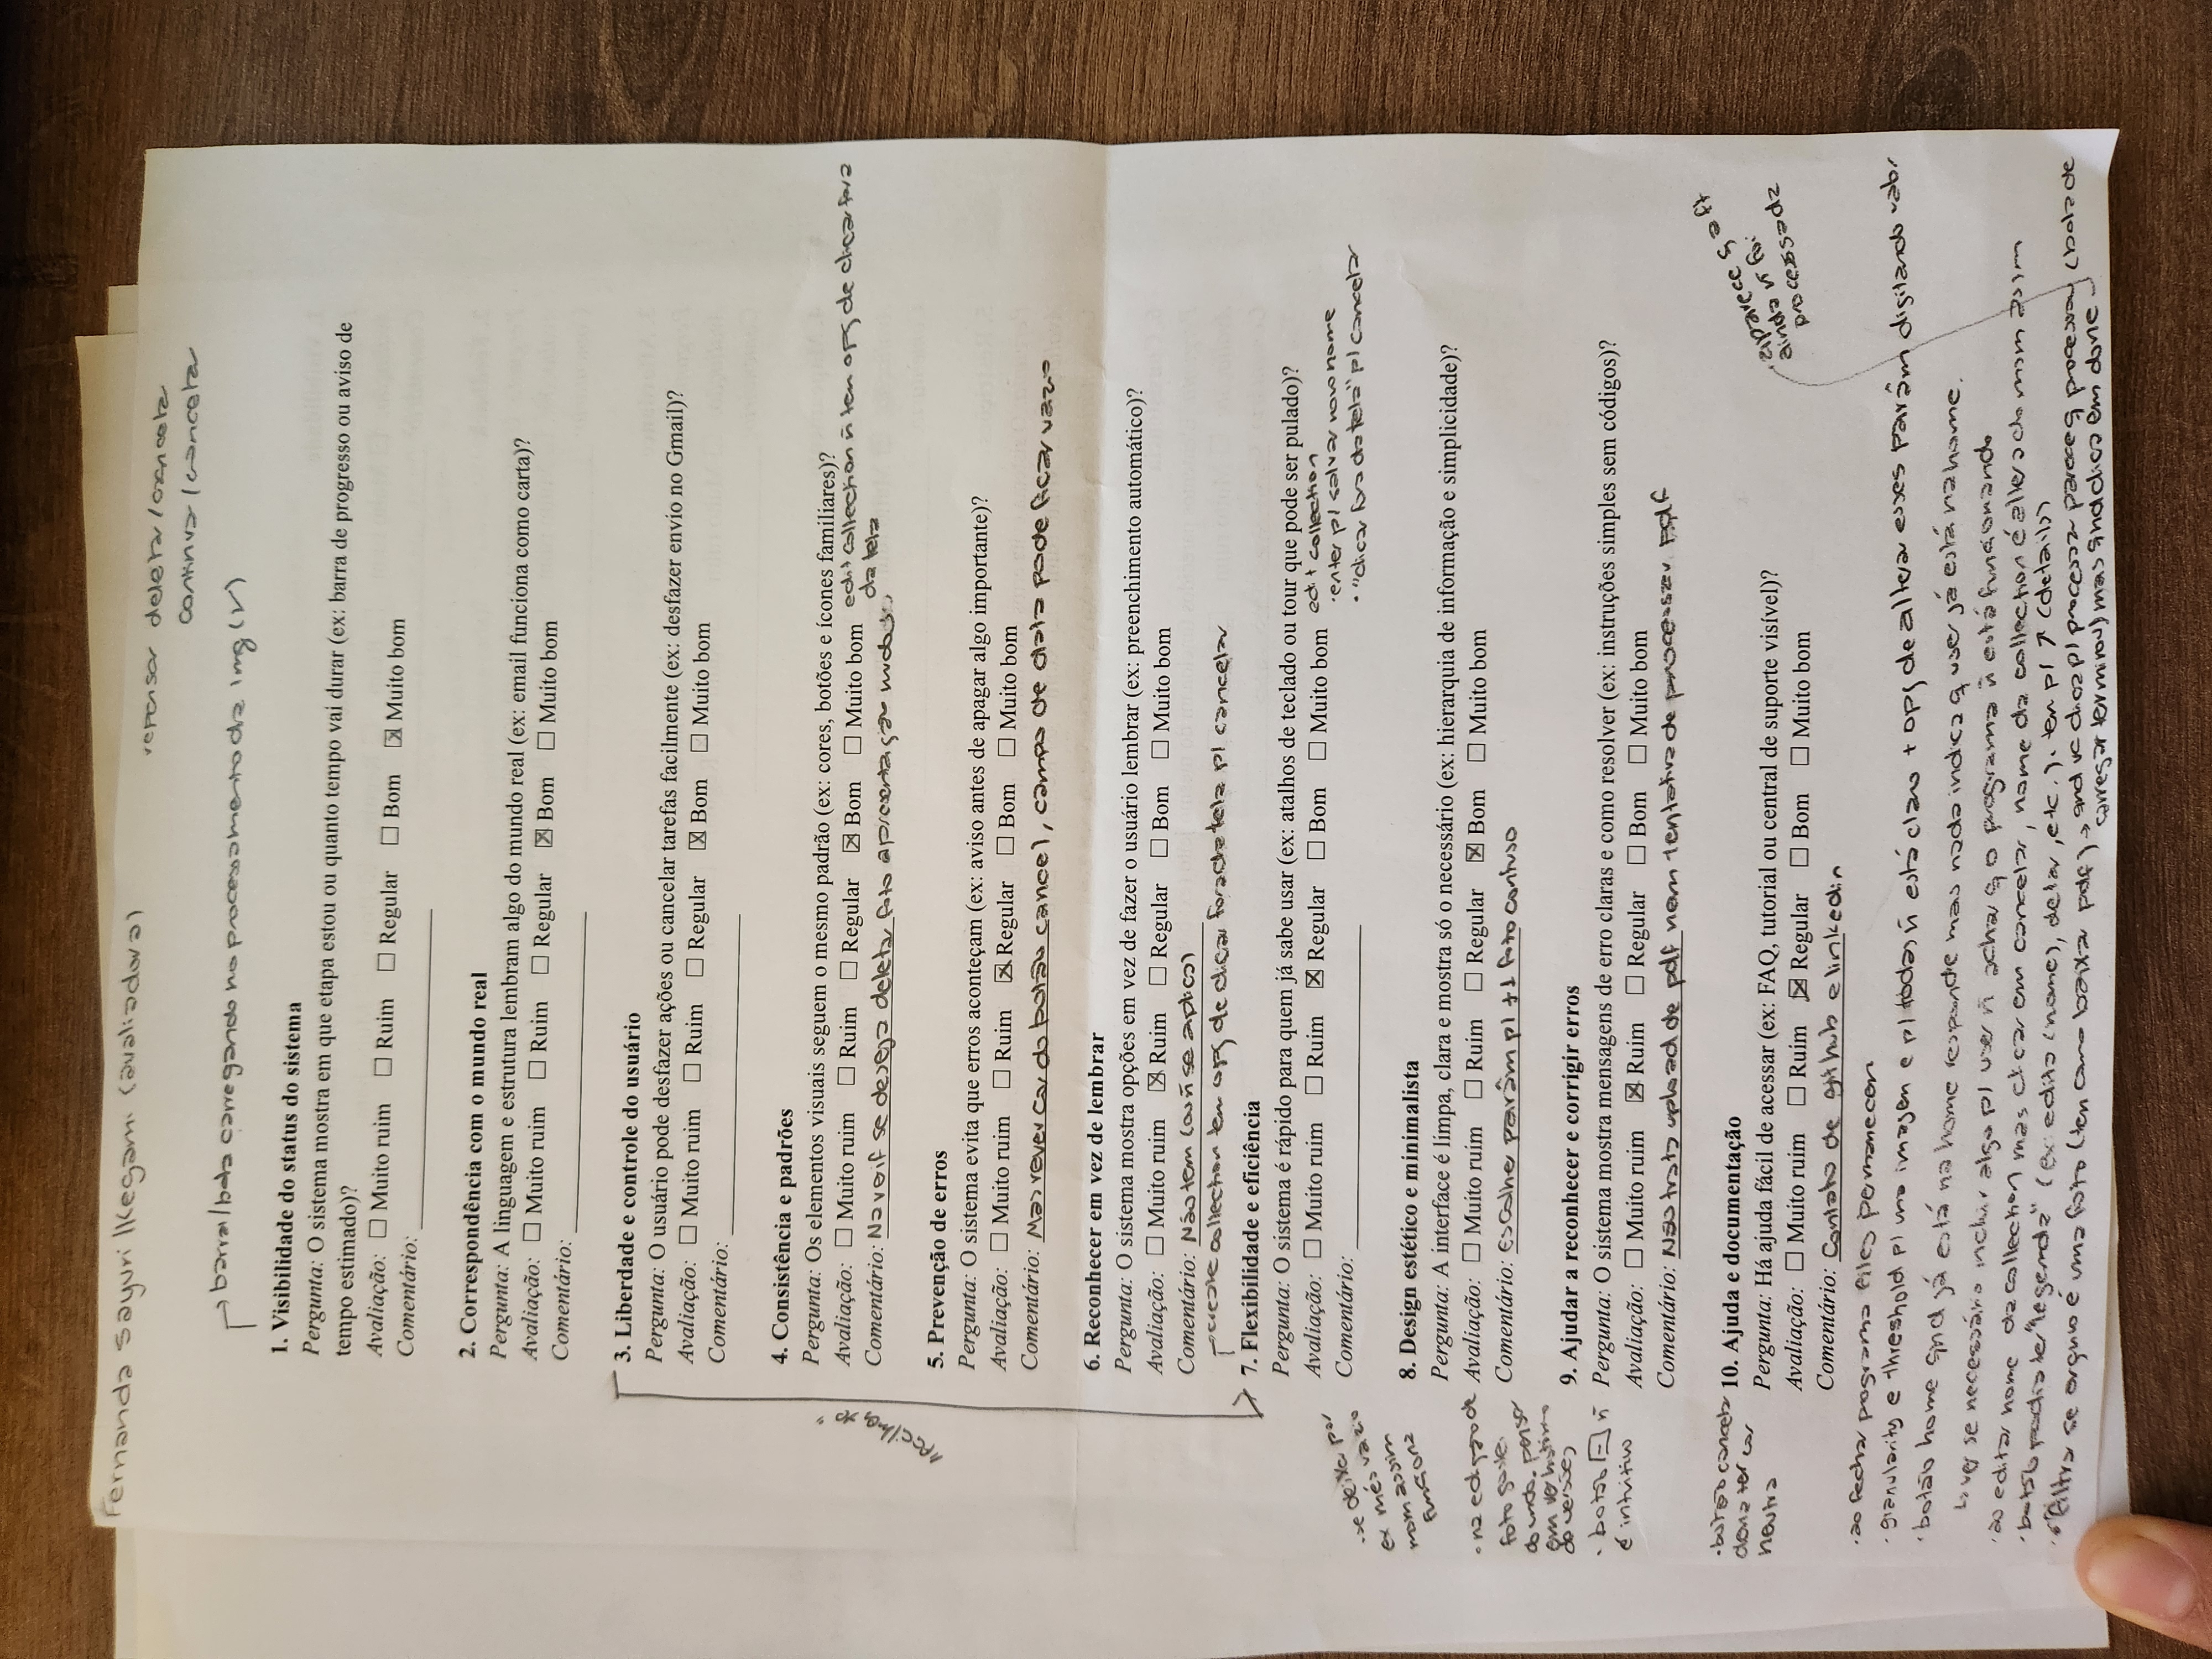 Fernanda Sayuri Ikegami (avaliadora)
repensar deletar/cancelar
continuar/cancelar
barra/bola carregando no processamento da img (V)
1. Visibilidade do status do sistema
Pergunta: O sistema mostra em que etapa estou ou quanto tempo vai durar (ex: barra de progresso ou aviso de
tempo estimado)?
Avaliação: ☐ Muito ruim ☐ Ruim ☐ Regular ☐ Bom ☒ Muito bom
Comentário:
2. Correspondência com o mundo real
Pergunta: A linguagem e estrutura lembram algo do mundo real (ex: email funciona como carta)?
Avaliação: ☐ Muito ruim ☐ Ruim ☐ Regular ☒ Bom ☐ Muito bom
Comentário:
3. Liberdade e controle do usuário
Pergunta: O usuário pode desfazer ações ou cancelar tarefas facilmente (ex: desfazer envio no Gmail)?
Avaliação: ☐ Muito ruim ☐ Ruim ☐ Regular ☒ Bom ☐ Muito bom
Comentário:
4. Consistência e padrões
Pergunta: Os elementos visuais seguem o mesmo padrão (ex: cores, botões e ícones familiares)?
Avaliação: ☐ Muito ruim ☐ Ruim ☐ Regular ☒ Bom ☐ Muito bom edit collection ñ tem opç de clicar fora
da tela
Comentário: Na verif se deseja deletar foto apresentação
5. Prevenção de erros
Pergunta: O sistema evita que erros aconteçam (ex: aviso antes de apagar algo importante)?
Avaliação: ☐ Muito ruim ☐ Ruim ☒ Regular ☐ Bom ☐ Muito bom
Comentário: Mas rever cor do botão cancel, campo de data pode ficar vazio
6. Reconhecer em vez de lembrar
Pergunta: O sistema mostra opções em vez de fazer o usuário lembrar (ex: preenchimento automático)?
Avaliação: ☐ Muito ruim ☒ Ruim ☐ Regular ☐ Bom ☐ Muito bom
Comentário: Não tem (ou ñ se aplica)
create collection tem opç de clicar fora da tela p/ cancelar
7. Flexibilidade e eficiência
Pergunta: O sistema é rápido para quem já sabe usar (ex: atalhos de teclado ou tour que pode ser pulado)?
Avaliação: ☐ Muito ruim ☐ Ruim ☒ Regular ☐ Bom ☐ Muito bom edit collection
·enter p/ salvar novo nome
Comentário:
· "clicar fora da tela" p/ cancelar
·se deixar por
ex mês vazio
mom assim
funciona
8. Design estético e minimalista
Pergunta: A interface é limpa, clara e mostra só o necessário (ex: hierarquia de informação e simplicidade)?
Avaliação: ☐ Muito ruim ☐ Ruim ☐ Regular ☒ Bom ☐ Muito bom
Comentário: Escolher parâm p/ +1 foto confuso
· na edição de
foto gostei
do undo. pensar
em ver histórico
de versões
· botão ñ
é intuitivo
9. Ajudar a reconhecer e corrigir erros
Pergunta: O sistema mostra mensagens de erro claras e como resolver (ex: instruções simples sem códigos)?
Avaliação: ☐ Muito ruim ☒ Ruim ☐ Regular ☐ Bom ☐ Muito bom
Comentário: Não trata upload de pdf nem tentativa de processar pdf
·botão cancelar
devia ter cor
neutra
10. Ajuda e documentação
Pergunta: Há ajuda fácil de acessar (ex: FAQ, tutorial ou central de suporte visível)?
Avaliação: ☐ Muito ruim ☐ Ruim ☒ Regular ☐ Bom ☐ Muito bom
Comentário: Contato de github e linkedin
aparece q a ft
ainda ñ foi
processada
·ao fechar programa files permanecem
·granularity e threshold p/ uma imagem e p/ todas ñ está claro + opç de alterar esses parâm digitando valor
·botão home qnd já está na home responde mas nada indica q user já está na home.
↳ ver se necessário incluir algo p/ user ñ achar q o programa ñ está funcionando
·ao editar nome da collection mas clicar em cancelar, nome da collection é alterado mom assim
·botão podia ter "legenda" (ex: edita (nome), deletar, etc.). tem p/ ↗ (details)
·filtrar se arquivo é uma foto (tem como baixar pdf) → qnd vc clica p/ processar parece q processou (bola de
carregar terminou) mas qnd clica em done